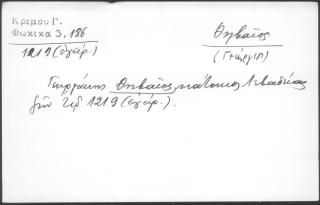 Κρέμου Γ.
Φωκικα 3, 186
1219 (ἐγείρ.)
Θηβαῖος
(Γεώργιος)
Γεωργάκης Θηβαῖος κάτοικος Λεβαδείας
ζῶν τῷ 1219 (ἐγείρ.).